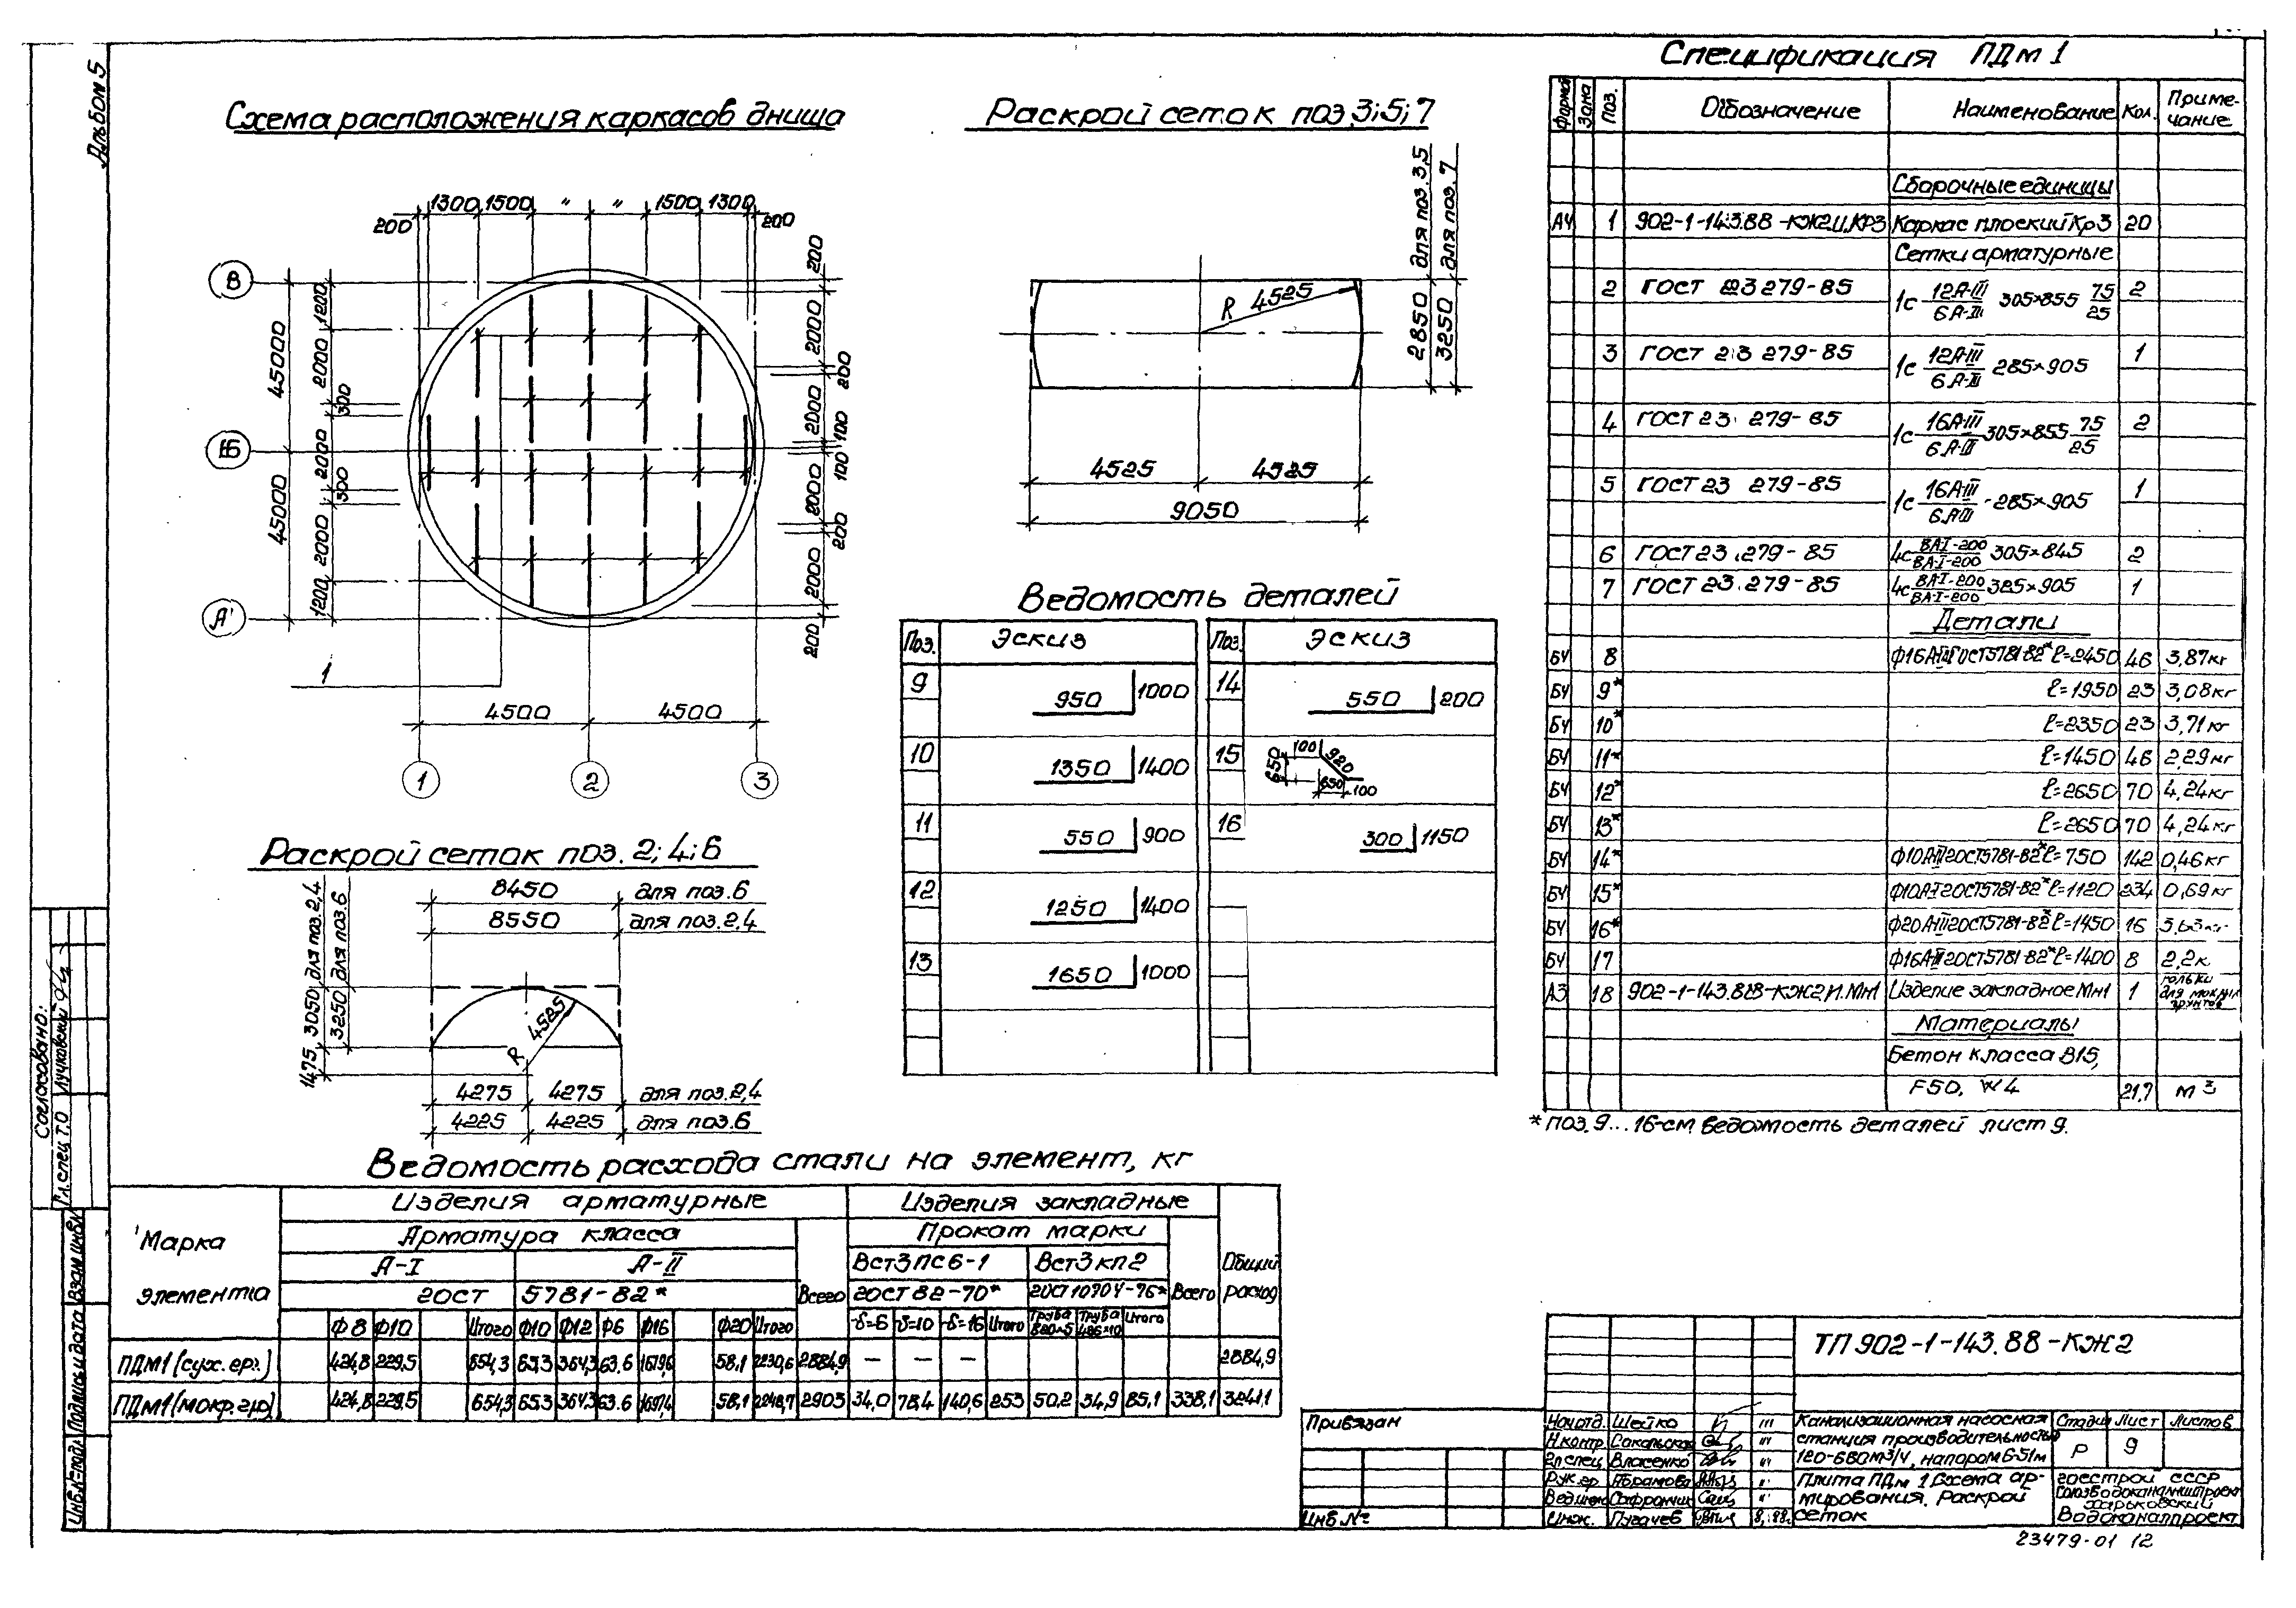 Альбом 5
Схема расположения каркасов днища
200 1300 1500 " " 1500 1300 200
В
Б
А'
45000
45000
1200
2000
300
2000
300
2000
1200
200
2000
200
2000
100
100
2000
200
2000
200
1
4500 4500
1 2 3
Раскрой сеток поз. 3; 5; 7
2850 для поз. 3,5
3250 для поз. 7
R 4525
4525 4525
9050
Раскрой сеток поз. 2; 4; 6
8450 для поз. 6
8550 для поз. 2,4
3050 для поз. 2,4
3250 для поз. 6
1475
R 4525
4275 4275 для поз. 2,4
4225 4225 для поз. 6
Ведомость деталей
Поз. Эскиз Поз. Эскиз
9 950 1000 14 550 200
10 1350 1400 15 650 100 920 650 100
11 550 900 16 300 1150
12 1250 1400
13 1650 1000
Спецификация ПДм 1
Формат Зона Поз. Обозначение Наименование Кол. Примечание
Сборочные единицы
А4 1 902-1-143.88-КЖ2.И.КР3 Каркас плоский Кр3 20
Сетки арматурные
2 ГОСТ 23279-85 1с 12А-III/6А-III 305×855 75/25 2
3 ГОСТ 23279-85 1с 12А-III/6А-III 285×905 1
4 ГОСТ 23279-85 1с 16А-III/6А-III 305×855 75/25 2
5 ГОСТ 23279-85 1с 16А-III/6АIII-285×905 1
6 ГОСТ 23.279-85 4с ВАI-200/ВА-I-200 305×845 2
7 ГОСТ 23.279-85 4с ВАI-200/ВАI-200 325×905 1
Детали
БЧ 8 ф16А-III ГОСТ5781-82* ℓ=2450 46 3,87кг
БЧ 9* ℓ=1950 23 3,08кг
БЧ 10* ℓ=2350 23 3,71кг
БЧ 11* ℓ=1450 46 2,29кг
БЧ 12* ℓ=2650 70 4,24кг
БЧ 13* ℓ=2650 70 4,24кг
БЧ 14* ф10АIII ГОСТ5781-82* ℓ=750 142 0,46кг
БЧ 15* ф10АI ГОСТ5781-82* ℓ=1120 234 0,69кг
БЧ 16* ф20АIII ГОСТ5781-82* ℓ=1450 16 3,63кг
БЧ 17 ф16АIII ГОСТ5781-82* ℓ=1400 8 2,2к
А3 18 902-1-143.88-КЖ2И.Мн1 Изделие закладное Мн1 1 только для мокрых грунтов
Материалы
Бетон класса В15,
F50, W4 21,7 м³
* поз. 9...16-см. ведомость деталей лист 9.
Ведомость расхода стали на элемент, кг
Марка элемента
Изделия арматурные Изделия закладные Общий расход
Арматура класса Всего Прокат марки Всего
А-I А-II Вст3пс6-1 Вст3кп2
ГОСТ 5781-82* ГОСТ 82-70* ГОСТ 10704-76*
Ф8 Ф10 Итого Ф10 Ф12 Ф6 Ф16 Ф20 Итого δ=6 δ=10 δ=16 Итого Труба Труба Итого
ПДМ1 (сух.гр.) 424,8 229,5 654,3 65,3 364,3 63.6 1679,6 58,1 2230,6 2884,9 — — — 2884,9
ПДм1 (мокр.гр) 424,8 229,5 654,3 65.3 364,3 63.6 1697,4 58,1 2248,7 2903 34,0 78,4 140,6 253 50,2 34,9 85,1 338,1 3241,1
Согласовано:
Гл. спец Т.О Лучковский
Инв. № подл. Подпись и дата Взам. инв. №
Привязан
Инв. №
ТП 902-1-143.88-КЖ2
Нач.отд. Шейко
Н.контр. Сокольская
Гл спец. Власенко
Рук.гр Абрамова
Вед.инж Сафрончик
Инж. Пугачев 8.88
Канализационная насосная станция производительностью 120-680м³/ч, напором 6-51м
Плита ПДм 1 Схема армирования. Раскрой сеток
Стадия Лист Листов
Р 9
Госстрой СССР
Союзводоканалниипроект
Харьковский
Водоканалпроект
23479-01 12